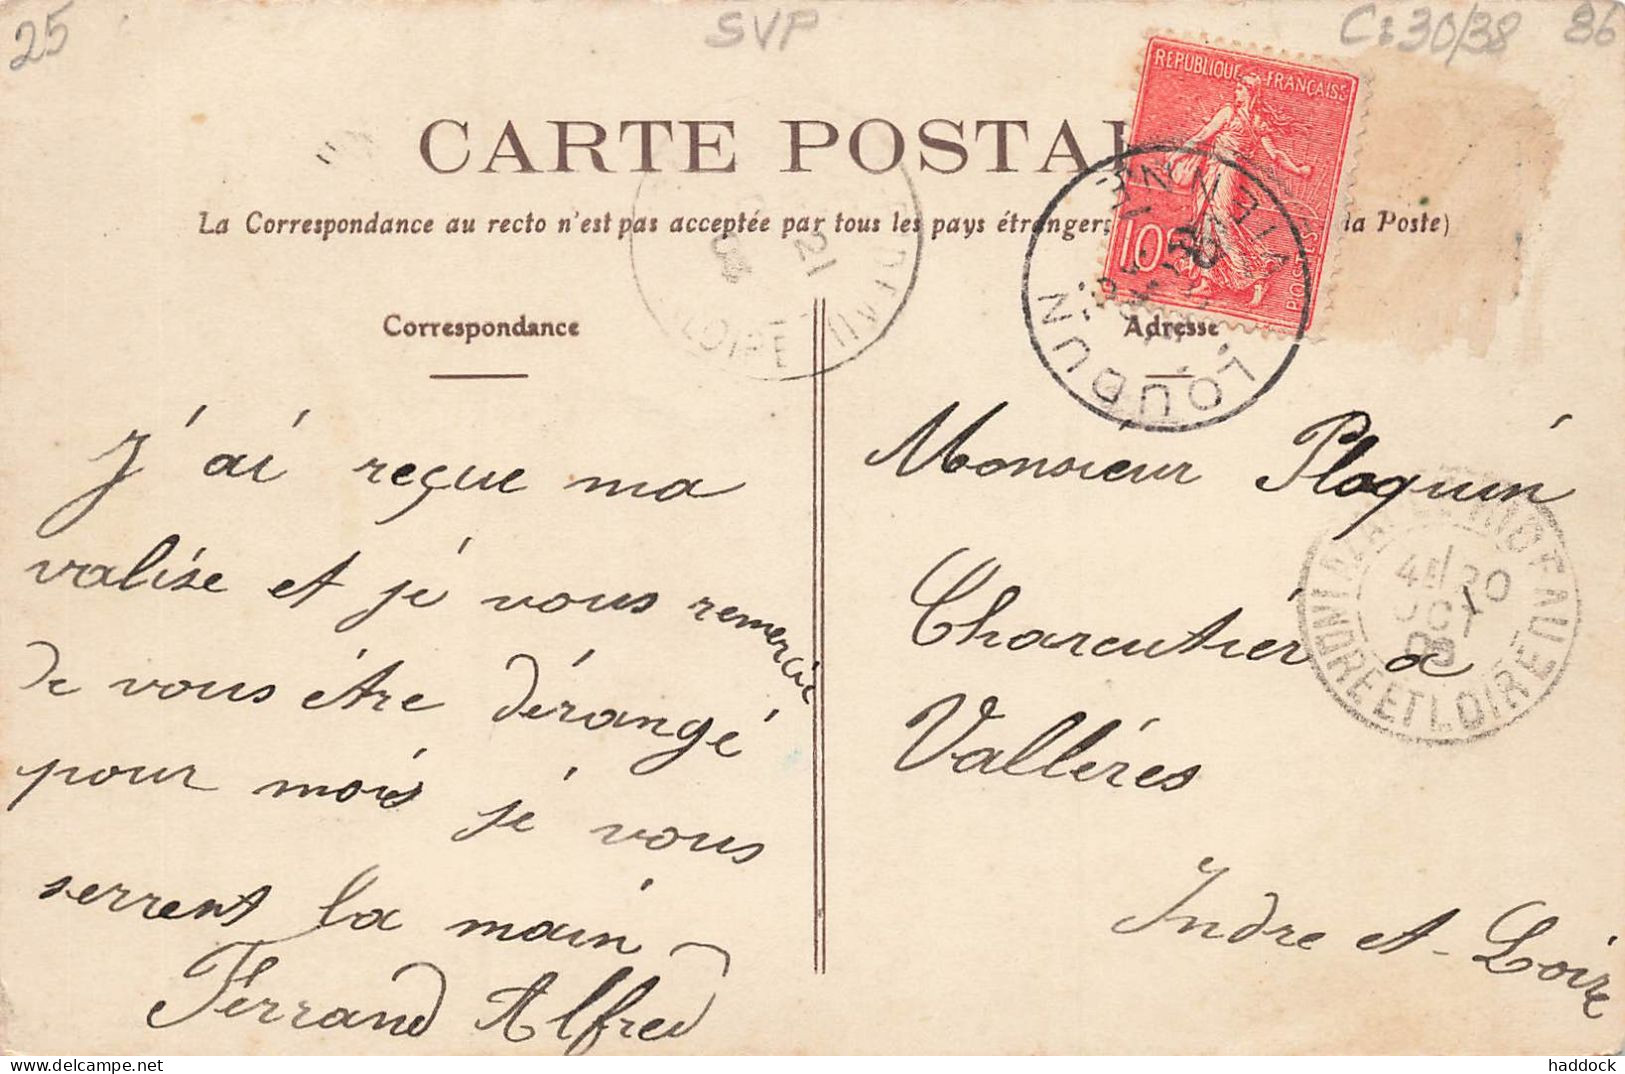 25
SVP
C: 30/38 86
REPUBLIQUE FRANÇAISE
10c
POSTES
CARTE POSTAL
La Correspondance au recto n'est pas acceptée par tous les pays étrangers la Poste)
LOUDUN
VIENNE
21
08
LOIRE
Correspondance
J'ai reçue ma
valise et je vous remercie
de vous être dérangé
pour mois je vous
serrent la main
Ferrand Alfred
Adresse
Monsieur Ploquin
Charcutier a
Vallères
Indre et-Loire
4E/20
OCT
08
INDRE ET LOIRE
haddock